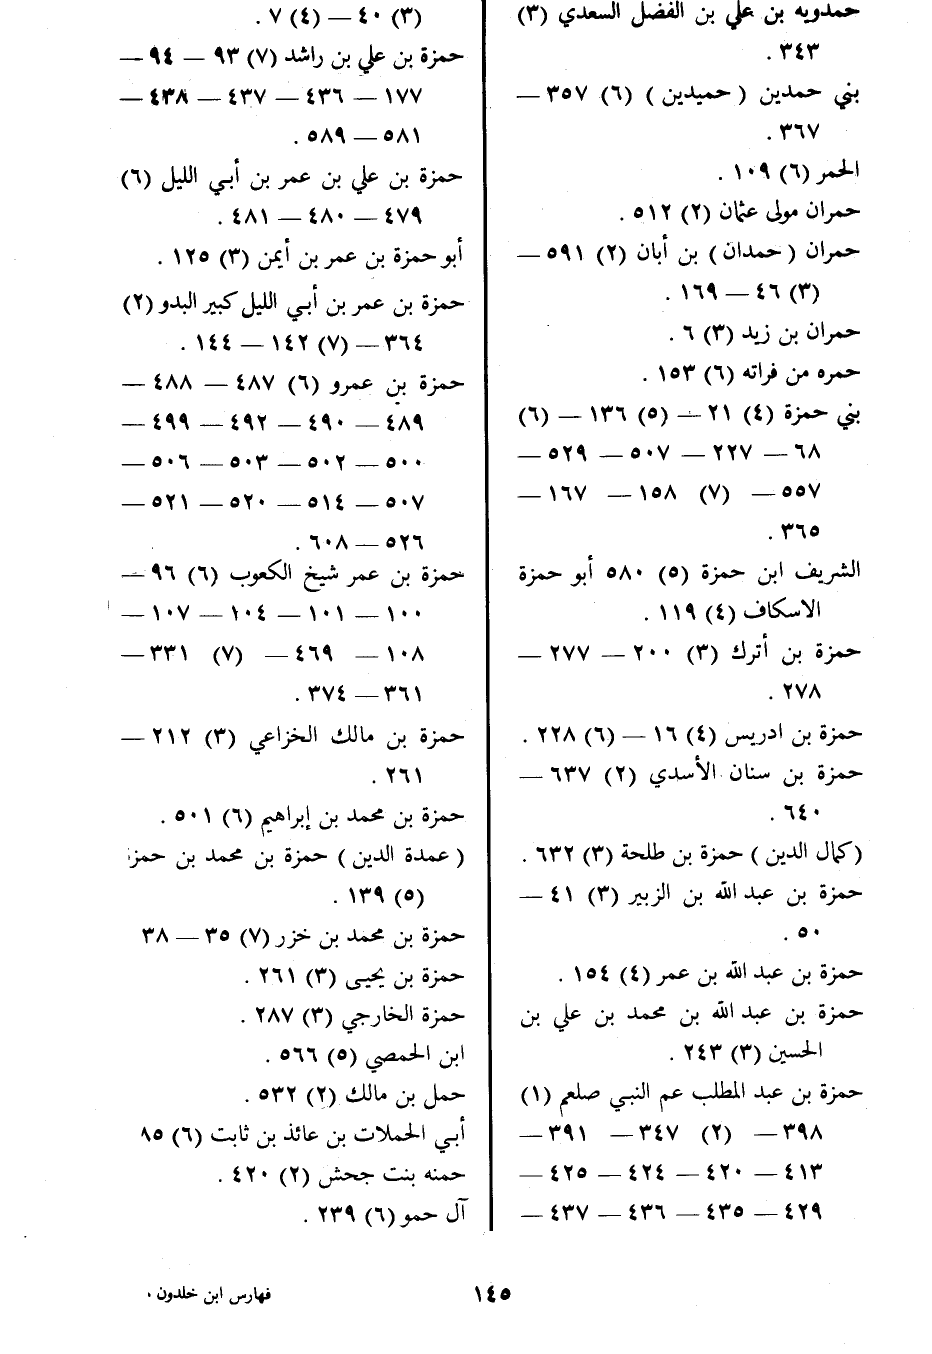 حمدويه بن علي بن الفضل السعدي (٣)
٣٤٣ .
بني حمدين ( حميدين ) (٦) ٣٥٧ —
٣٦٧ .
الحمر (٦) ١٠٩ .
حمران مولى عثمان (٢) ٥١٢ .
حمران ( حمدان ) بن أبان (٢) ٥٩١ —
(٣) ٤٦ — ١٦٩ .
حمران بن زيد (٣) ٦ .
حمره من فراته (٦) ١٥٣ .
بني حمزة (٤) ٢١ — (٥) ١٣٦ — (٦)
٦٨ — ٢٢٧ — ٥٠٧ — ٥٢٩ —
٥٥٧ — (٧) ١٥٨ — ١٦٧ —
٣٦٥ .
الشريف ابن حمزة (٥) ٥٨٠ أبو حمزة
الاسكاف (٤) ١١٩ .
حمزة بن أترك (٣) ٢٠٠ — ٢٧٧ —
٢٧٨ .
حمزة بن ادريس (٤) ١٦ — (٦) ٢٢٨ .
حمزة بن سنان الأسدي (٢) ٦٣٧ —
٦٤٠ .
(كمال الدين ) حمزة بن طلحة (٣) ٦٣٢ .
حمزة بن عبد الله بن الزبير (٣) ٤١ —
٥٠ .
حمزة بن عبد الله بن عمر (٤) ١٥٤ .
حمزة بن عبد الله بن محمد بن علي بن
الحسين (٣) ٢٤٣ .
حمزة بن عبد المطلب عم النبي صلعم (١)
٣٩٨ — (٢) ٣٤٧ — ٣٩١ —
٤١٣ — ٤٢٠ — ٤٢٤ — ٤٢٥ —
٤٢٩ — ٤٣٥ — ٤٣٦ — ٤٣٧ —
(٣) ٤٠ — (٤) ٧ .
حمزة بن علي بن راشد (٧) ٩٣ — ٩٤ —
١٧٧ — ٤٣٦ — ٤٣٧ — ٤٣٨ —
٥٨١ — ٥٨٩ .
حمزة بن علي بن عمر بن أبي الليل (٦)
٤٧٩ — ٤٨٠ — ٤٨١ .
أبو حمزة بن عمر بن أيمن (٣) ١٢٥ .
حمزة بن عمر بن أبي الليل كبير البدو (٢)
٣٦٤ — (٧) ١٤٢ — ١٤٤ .
حمزة بن عمرو (٦) ٤٨٧ — ٤٨٨ —
٤٨٩ — ٤٩٠ — ٤٩٢ — ٤٩٩ —
٥٠٠ — ٥٠٢ — ٥٠٣ — ٥٠٦ —
٥٠٧ — ٥١٤ — ٥٢٠ — ٥٢١ —
٥٢٦ — ٦٠٨ .
حمزة بن عمر شيخ الكعوب (٦) ٩٦ —
١٠٠ — ١٠١ — ١٠٤ — ١٠٧ —
١٠٨ — ٤٦٩ — (٧) ٣٣١ —
٣٦١ — ٣٧٤ .
حمزة بن مالك الخزاعي (٣) ٢١٢ —
٢٦١ .
حمزة بن محمد بن إبراهيم (٦) ٥٠١ .
( عمدة الدين ) حمزة بن محمد بن حمزة
(٥) ١٣٩ .
حمزة بن محمد بن خزر (٧) ٣٥ — ٣٨
حمزة بن يحيى (٣) ٢٦١ .
حمزة الخارجي (٣) ٢٨٧ .
ابن الحمصي (٥) ٥٦٦ .
حمل بن مالك (٢) ٥٣٢ .
أبي الحملات بن عائذ بن ثابت (٦) ٨٥
حمنه بنت جحش (٢) ٤٢٠ .
آل حمو (٦) ٢٣٩ .
١٤٥
فهارس ابن خلدون ٠